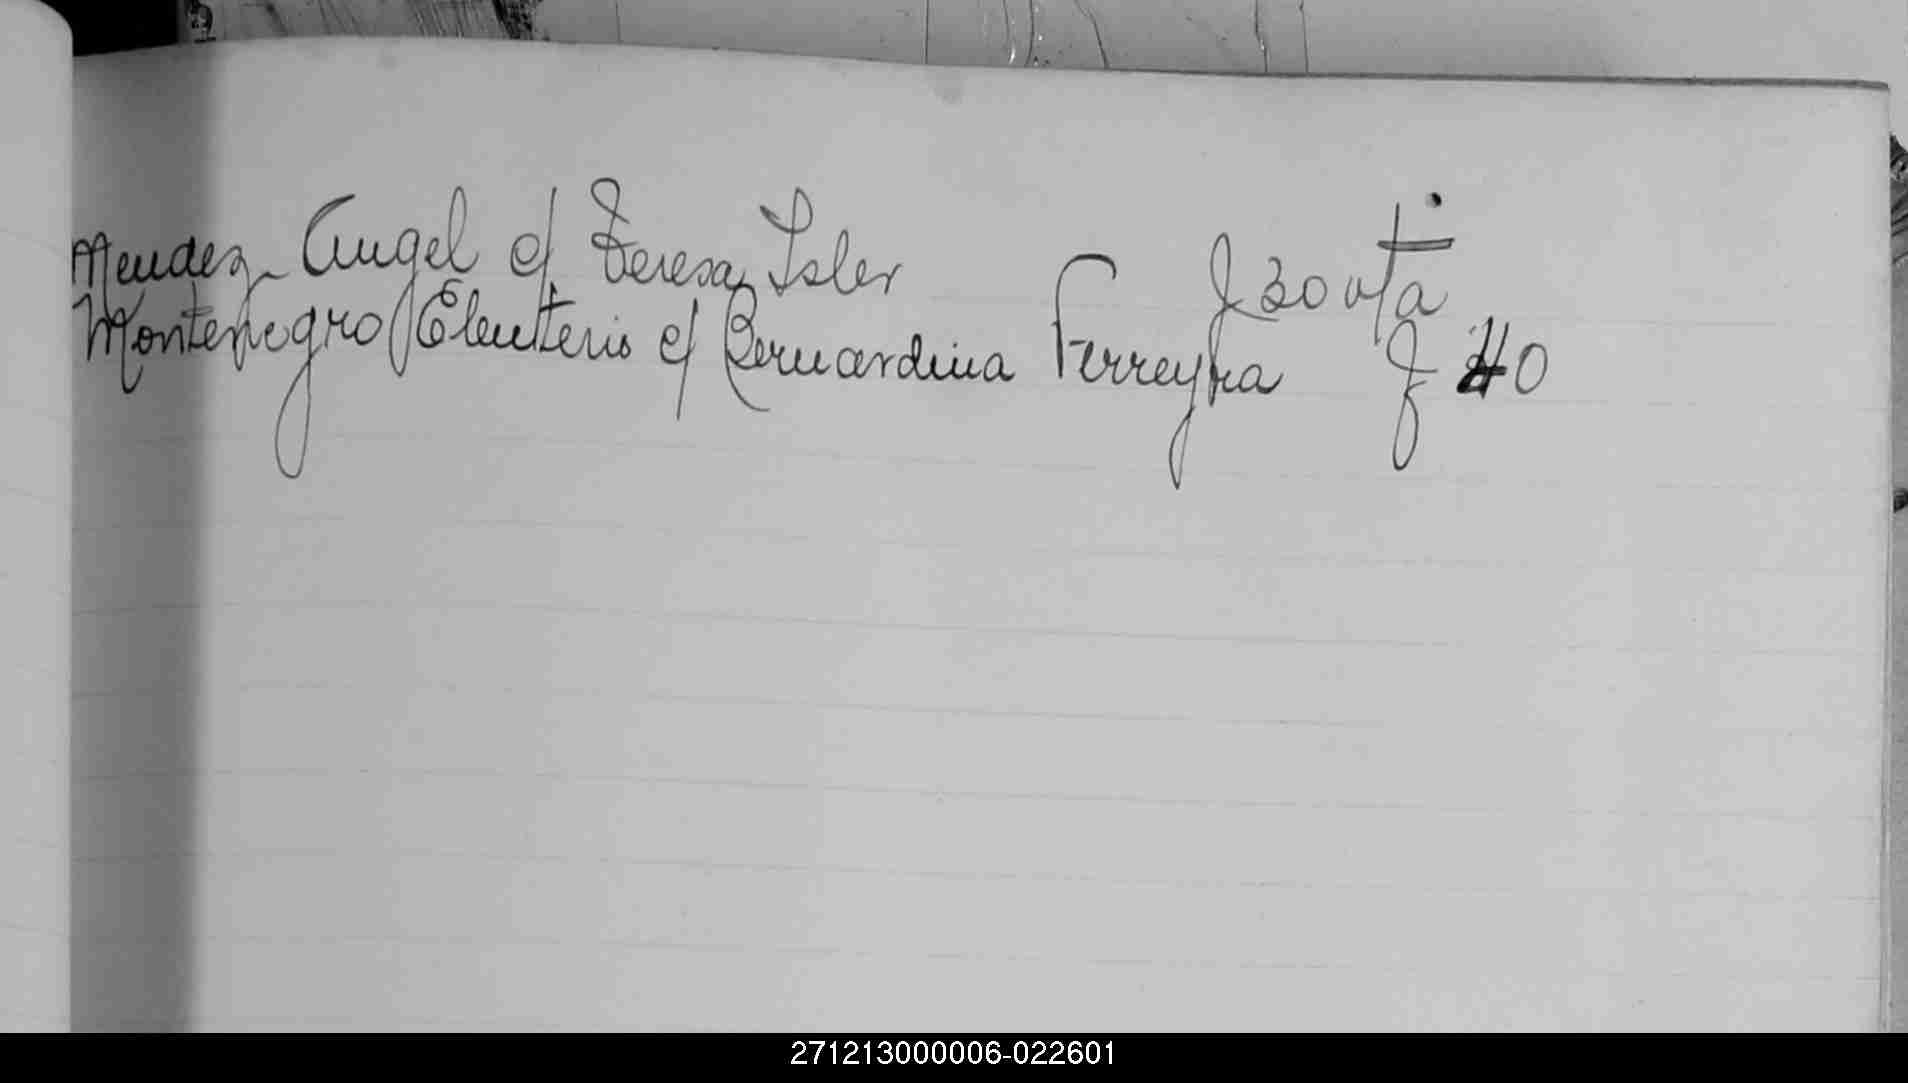 Mendez Angel c/ Teresa Isler f 30 vta
Montenegro Eleuterio c/ Bernardina Ferreyra f 40
271213000006-022601